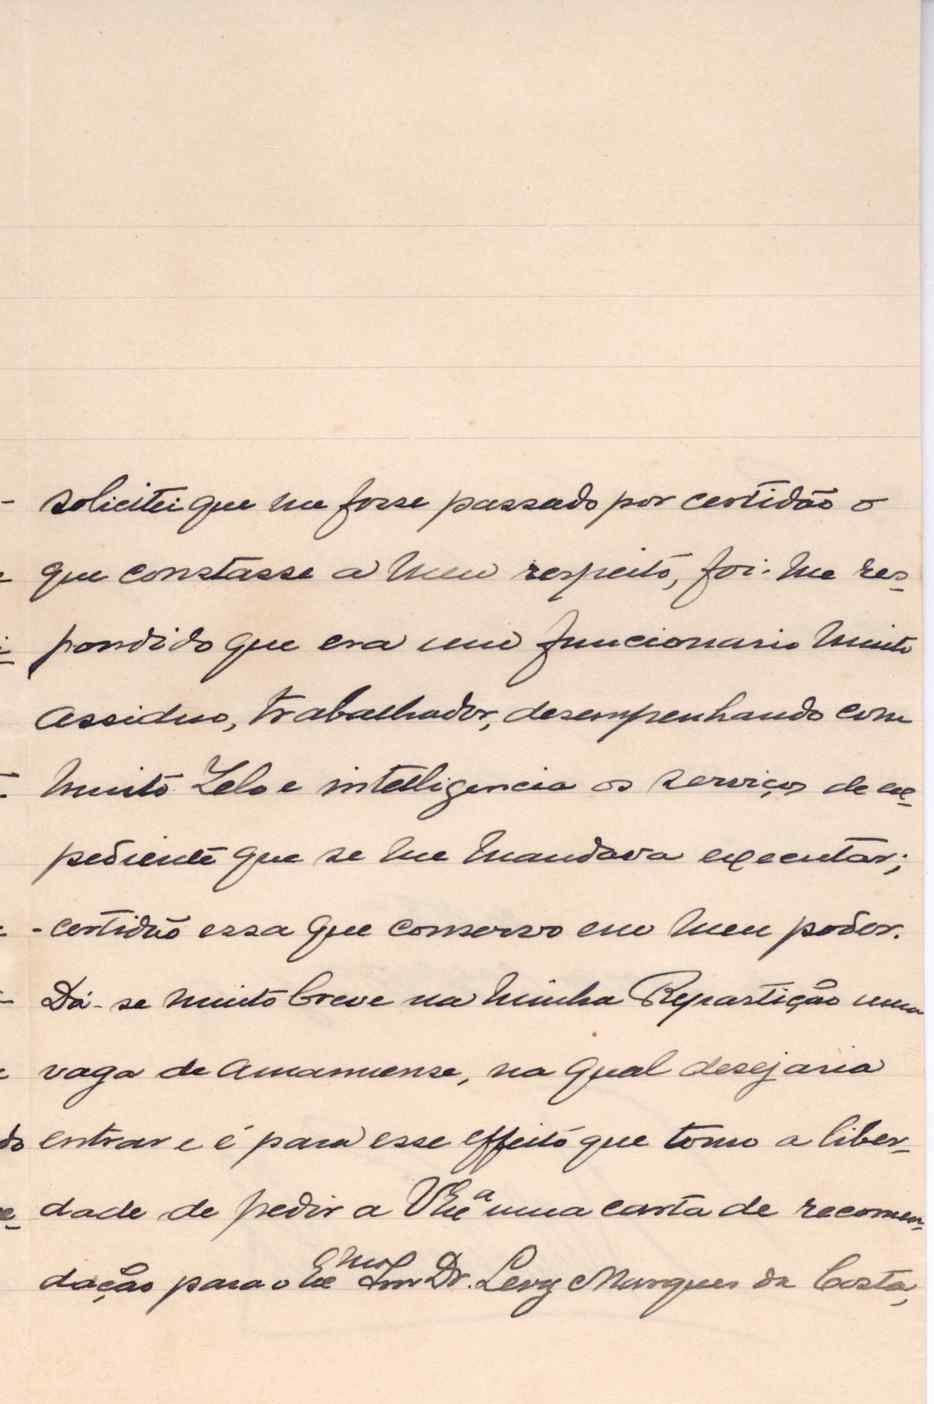 solicitei que me fosse passado por certidão o
que constasse a meu respeito, foi-me res-
pondido que era um funcionario muito
assiduo, trabalhador, desempenhando com
muito zelo e intelligencia os serviços de ex-
pediente que se me mandava executar;
-certidão essa que conservo em meu poder.
Dá-se muito breve na minha Repartição uma
vaga de amanuense, na qual desejaria
entrar e é para esse effeito que tomo a liber-
dade de pedir a VExª uma carta de recomen-
dação para o Exmo Snr Dr. Levy Marques da Costa,